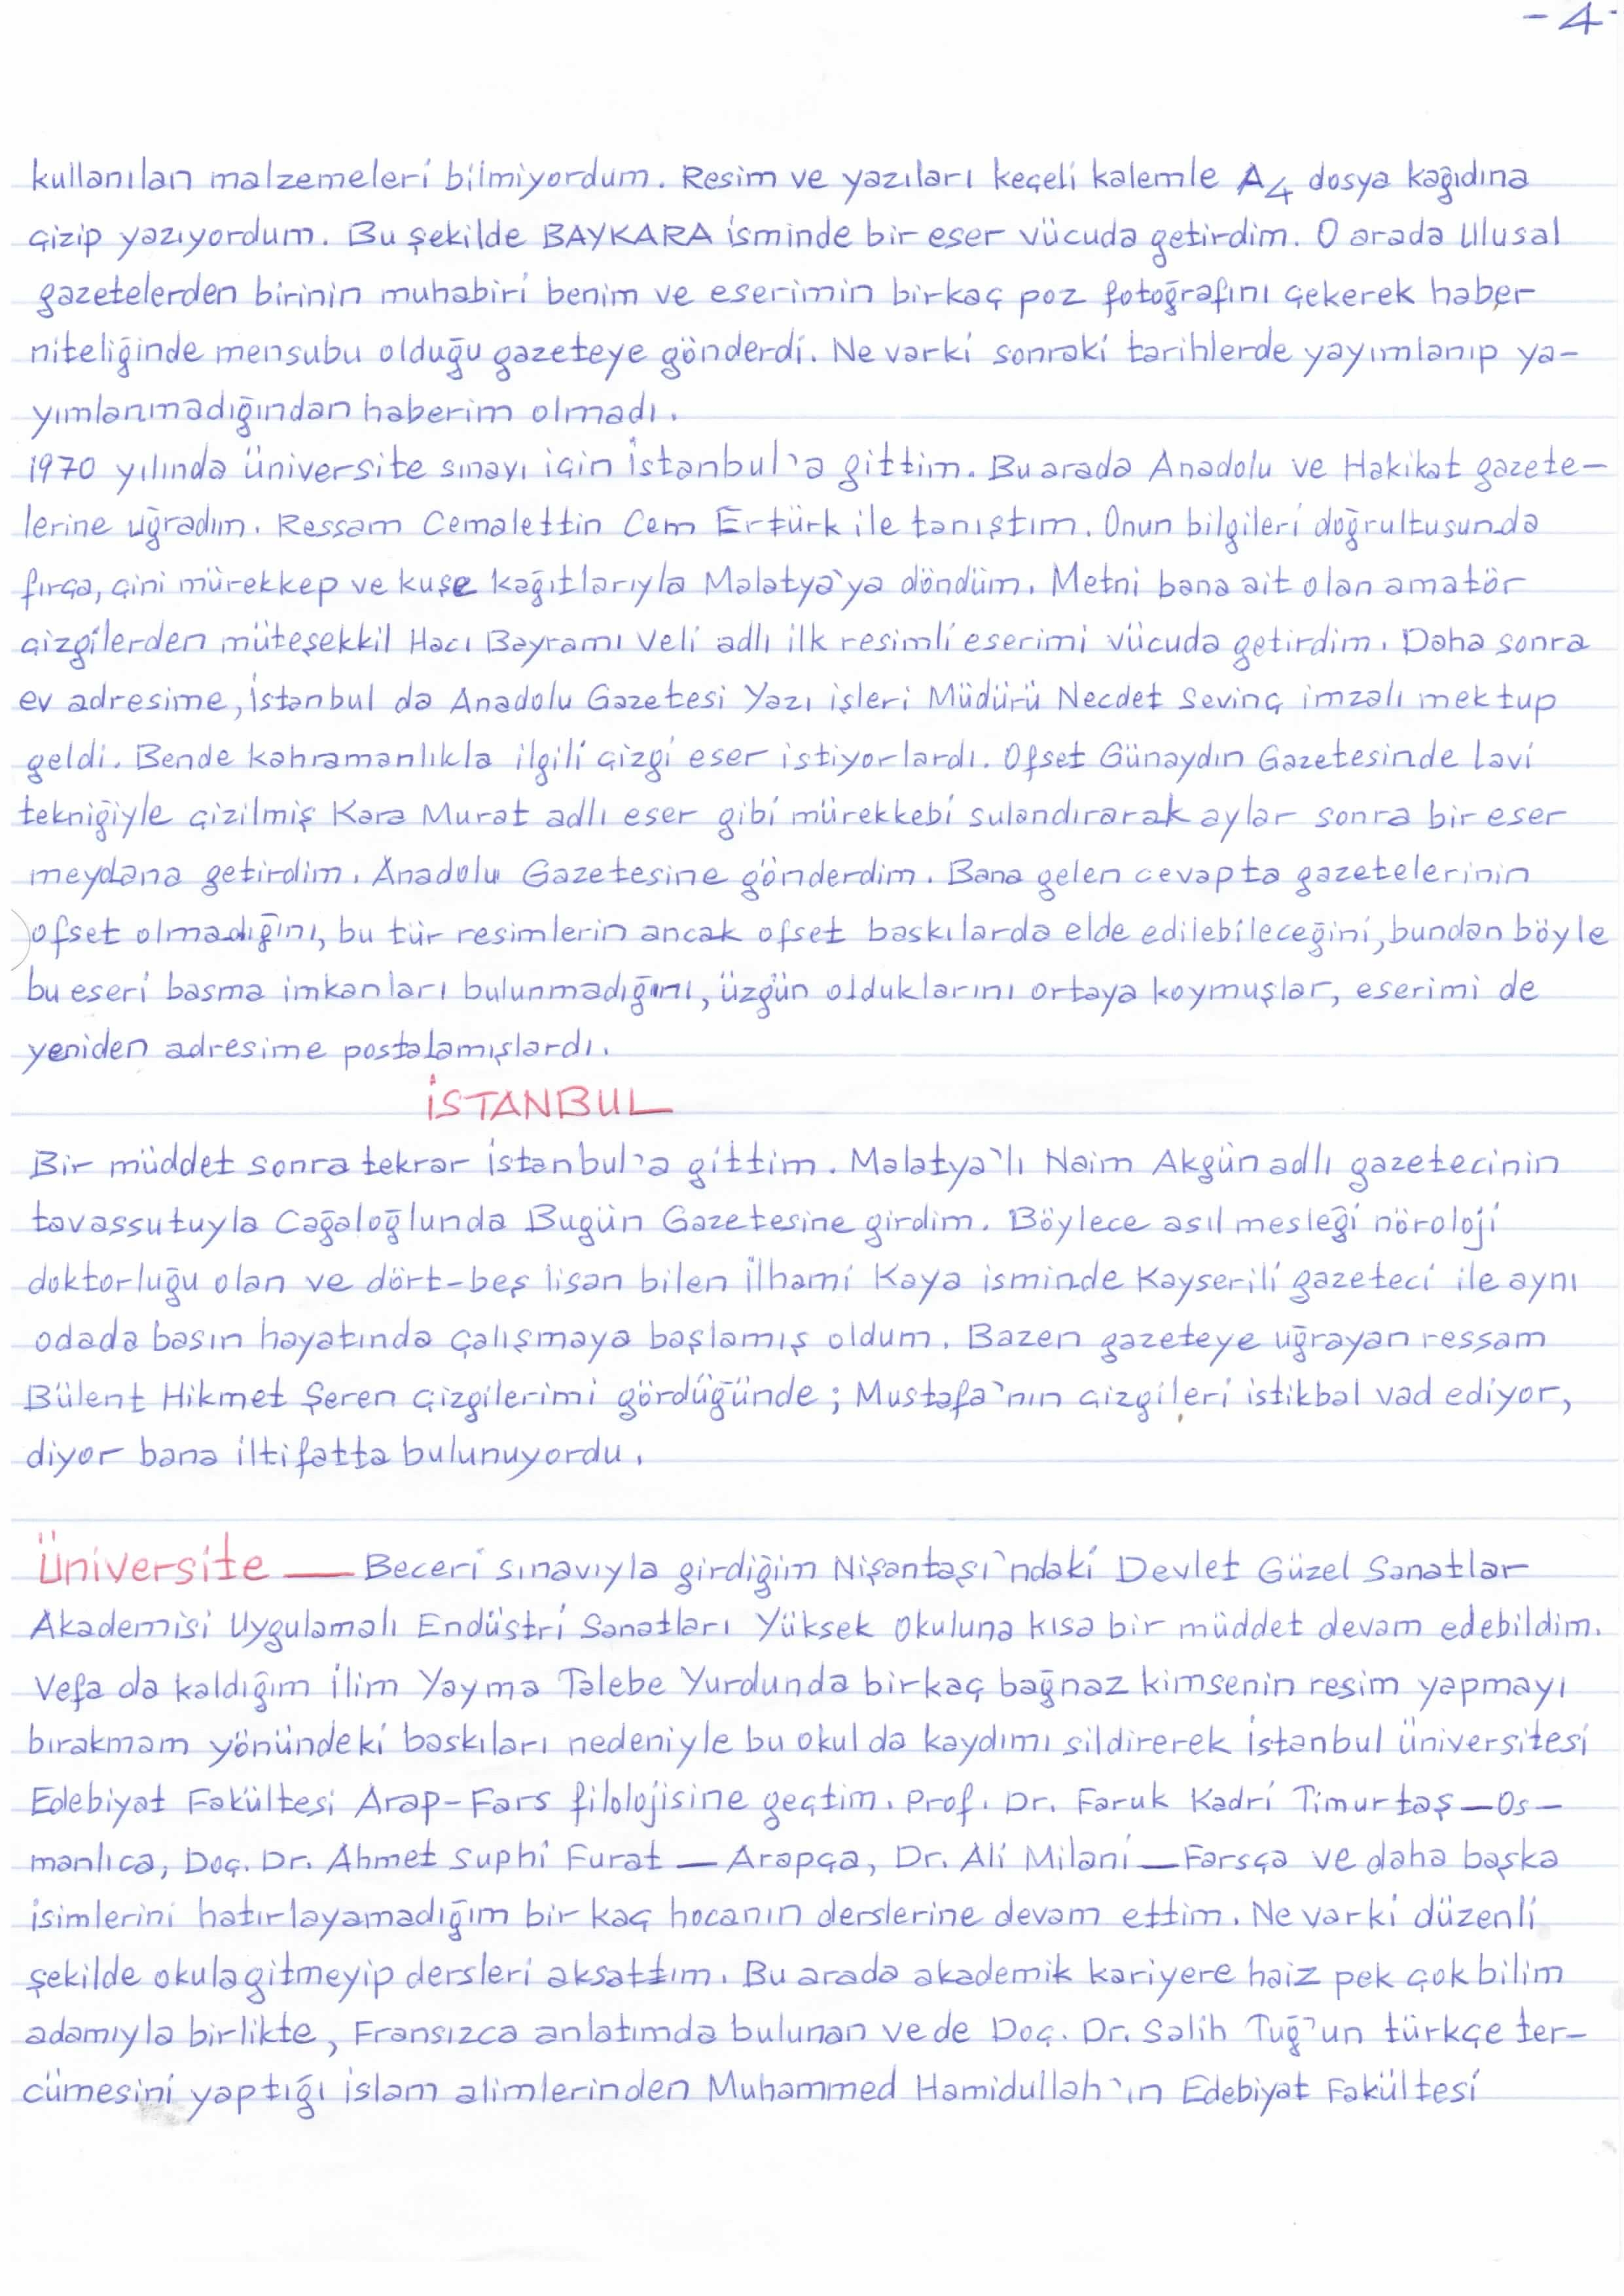 -4-
kullanılan malzemeleri bilmiyordum. Resim ve yazıları keçeli kalemle A4 dosya kağıdına
çizip yazıyordum. Bu şekilde BAYKARA isminde bir eser vücuda getirdim. O arada Ulusal
gazetelerden birinin muhabiri benim ve eserimin birkaç poz fotoğrafını çekerek haber
niteliğinde mensubu olduğu gazeteye gönderdi. Ne varki sonraki tarihlerde yayımlanıp ya-
yımlanmadığından haberim olmadı.
1970 yılında üniversite sınavı için İstanbul'a gittim. Bu arada Anadolu ve Hakikat gazete-
lerine uğradım. Ressam Cemalettin Cem Ertürk ile tanıştım. Onun bilgileri doğrultusunda
fırça, çini mürekkep ve kuşe kağıtlarıyla Malatya'ya döndüm. Metni bana ait olan amatör
çizgilerden müteşekkil Hacı Bayramı Veli adlı ilk resimli eserimi vücuda getirdim. Daha sonra
ev adresime, İstanbul da Anadolu Gazetesi Yazı işleri Müdürü Necdet Sevinç imzalı mektup
geldi. Bende kahramanlıkla ilgili çizgi eser istiyorlardı. Ofset Günaydın Gazetesinde lavi
tekniğiyle çizilmiş Kara Murat adlı eser gibi mürekkebi sulandırarak aylar sonra bir eser
meydana getirdim. Anadolu Gazetesine gönderdim. Bana gelen cevapta gazetelerinin
ofset olmadığını, bu tür resimlerin ancak ofset baskılarda elde edilebileceğini, bundan böyle
bu eseri basma imkanları bulunmadığını, üzgün olduklarını ortaya koymuşlar, eserimi de
yeniden adresime postalamışlardı.
İSTANBUL
Bir müddet sonra tekrar İstanbul'a gittim. Malatya'lı Naim Akgün adlı gazetecinin
tavassutuyla Cağaloğlunda Bugün Gazetesine girdim. Böylece asıl mesleği nöroloji
doktorluğu olan ve dört-beş lisan bilen İlhami Kaya isminde Kayserili gazeteci ile aynı
odada basın hayatında çalışmaya başlamış oldum. Bazen gazeteye uğrayan ressam
Bülent Hikmet Şeren çizgilerimi gördüğünde; Mustafa'nın çizgileri istikbal vad ediyor,
diyor bana iltifatta bulunuyordu.
Üniversite — Beceri sınavıyla girdiğim Nişantaşı'ndaki Devlet Güzel Sanatlar
Akademisi Uygulamalı Endüstri Sanatları Yüksek Okuluna kısa bir müddet devam edebildim.
Vefa da kaldığım İlim Yayma Talebe Yurdunda birkaç bağnaz kimsenin resim yapmayı
bırakmam yönündeki baskıları nedeniyle bu okul da kaydımı sildirerek İstanbul Üniversitesi
Edebiyat Fakültesi Arap-Fars filolojisine geçtim. Prof. Dr. Faruk Kadri Timurtaş — Os-
manlıca, Doç. Dr. Ahmet Suphi Furat — Arapça, Dr. Ali Milani — Farsça ve daha başka
isimlerini hatırlayamadığım bir kaç hocanın derslerine devam ettim. Ne varki düzenli
şekilde okula gitmeyip dersleri aksattım. Bu arada akademik kariyere haiz pek çok bilim
adamıyla birlikte, Fransızca anlatımda bulunan ve de Doç. Dr. Salih Tuğ'un türkçe ter-
cümesini yaptığı İslam alimlerinden Muhammed Hamidullah'ın Edebiyat Fakültesi